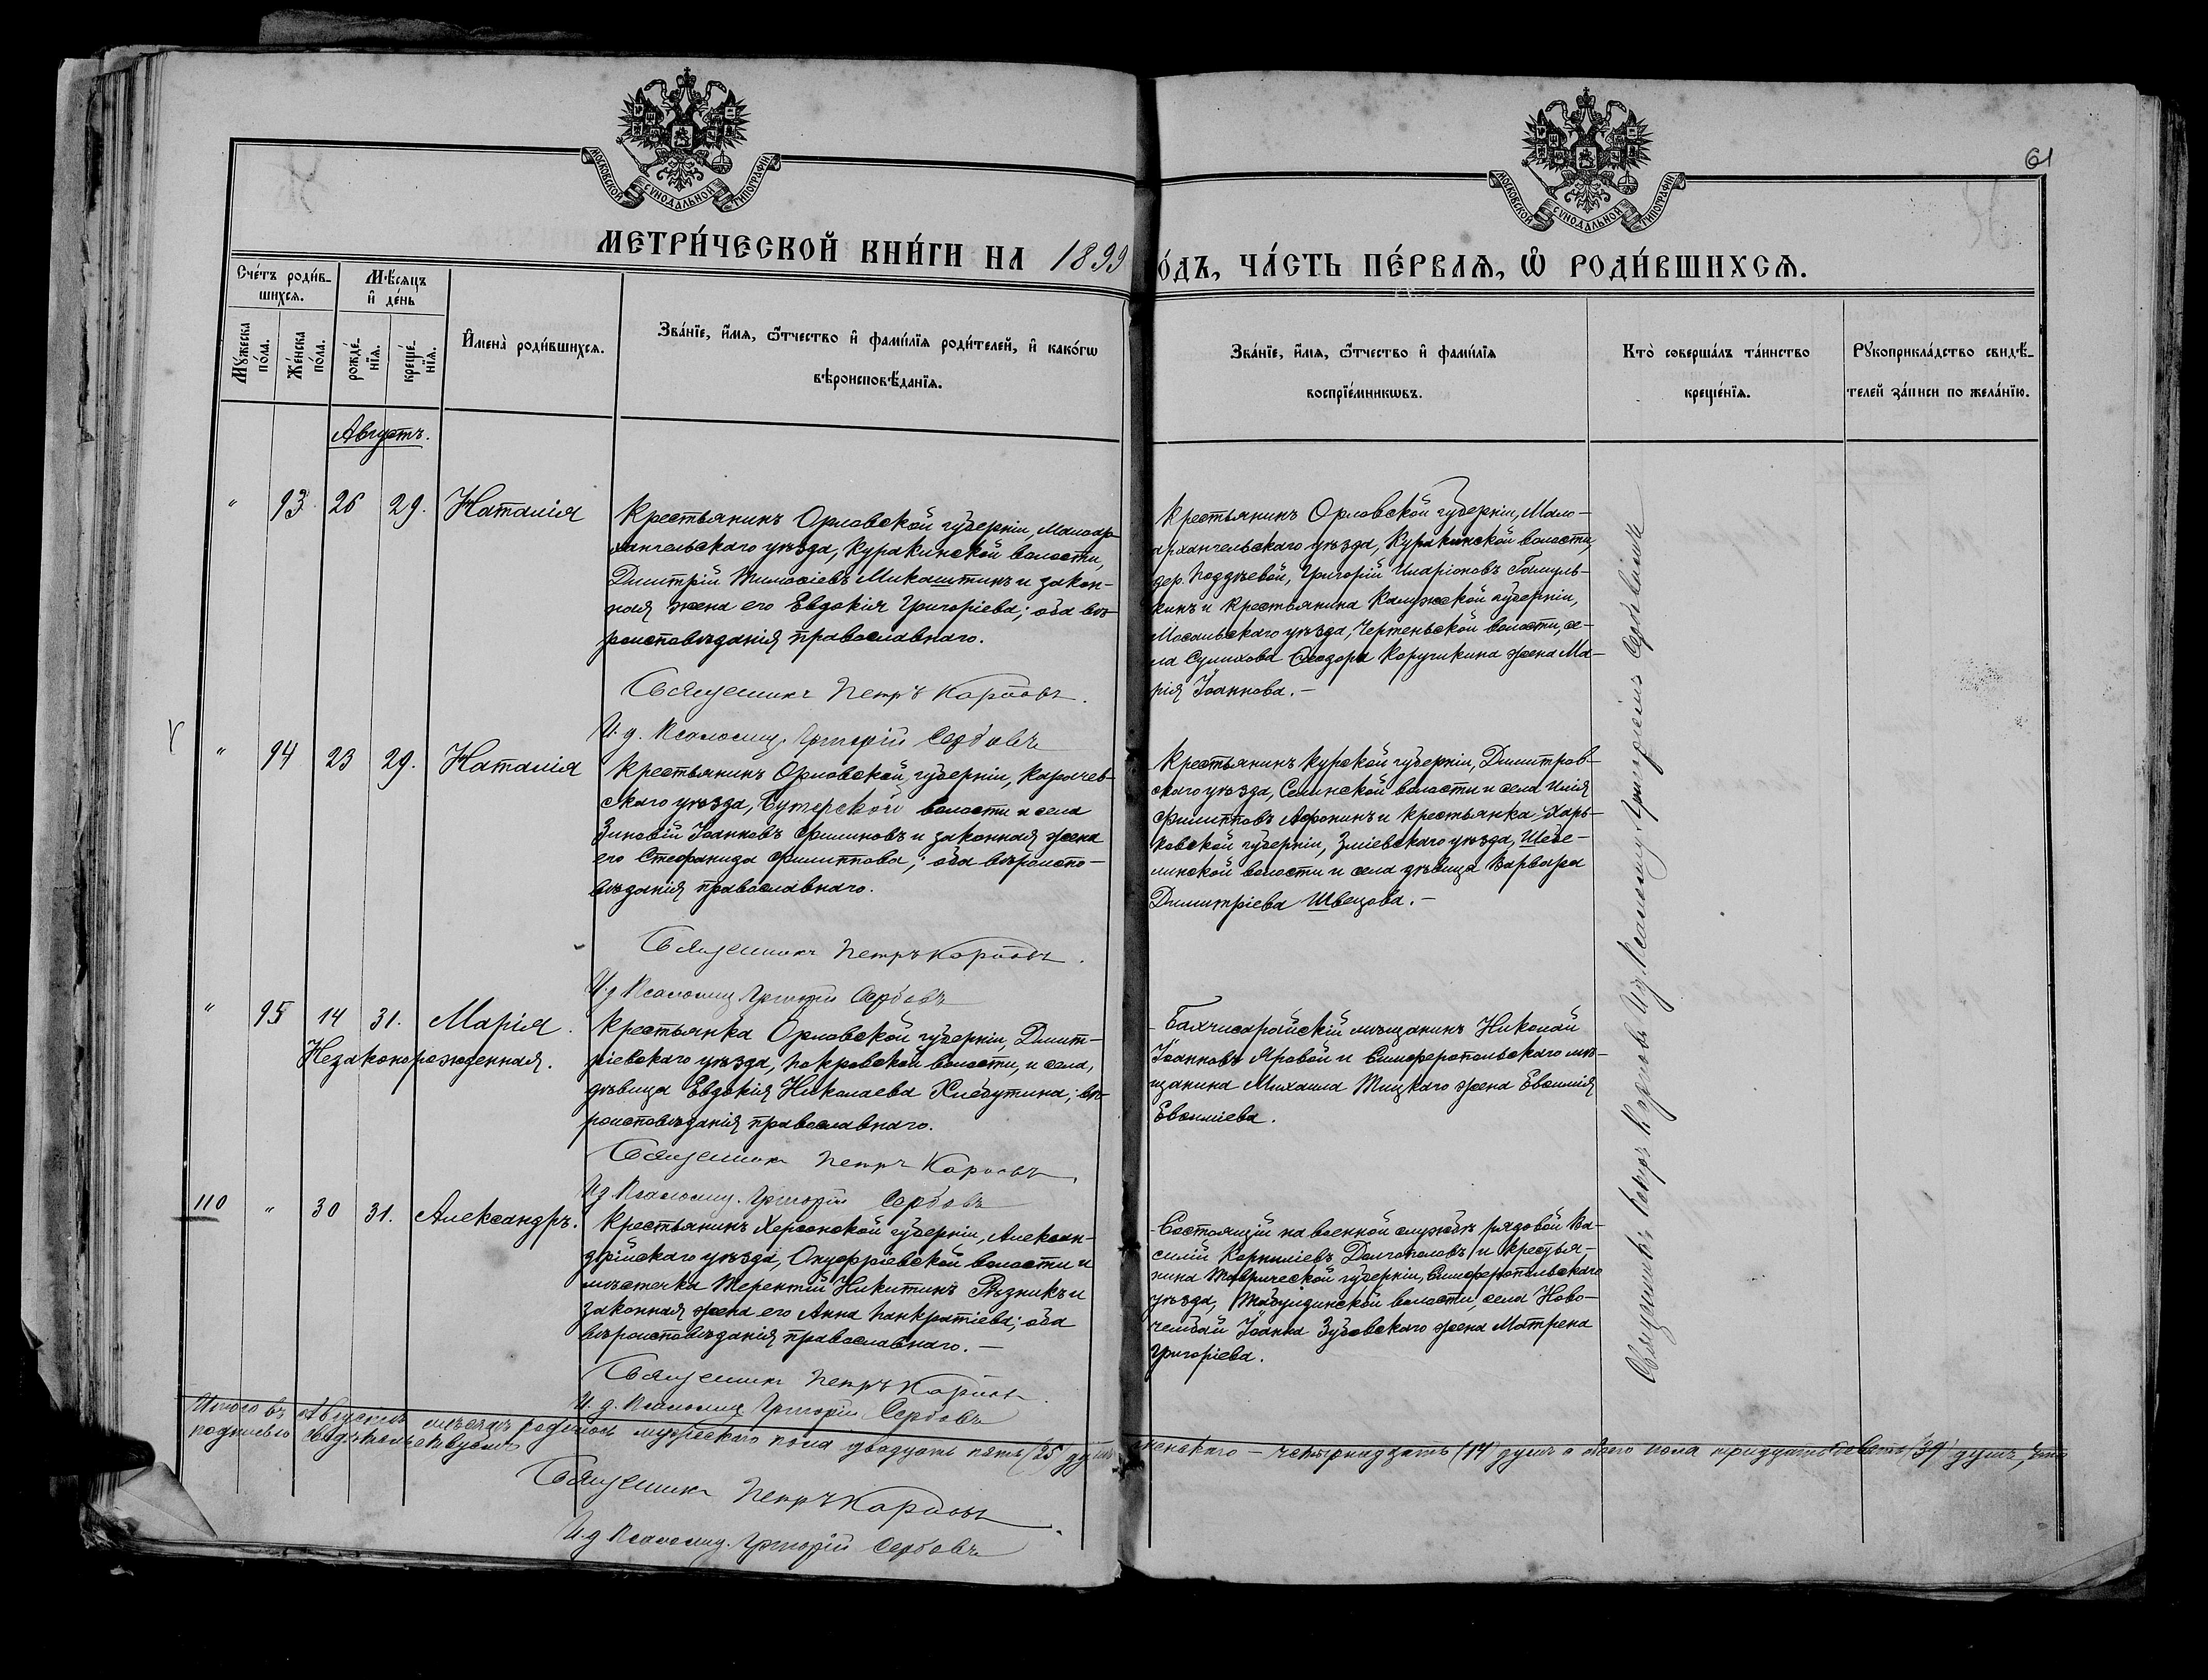 61
МОСКОВСКОЙ СѴНОДАЛЬНОЙ ТИПОГРАФІИ
МОСКОВСКОЙ СѴНОДАЛЬНОЙ ТИПОГРАФІИ
МЕТРИ́ЧЕСКОЙ КНИ́ГИ НА 1899
О́ДЪ, ЧА́СТЬ ПЕ́РВАѦ, Ѽ РОДИ́ВШИХСѦ.
Сче́тъ роди́в-
шихсѧ.
Мѣ́сѧцъ
и҆ де́нь
Мꙋ́жеска
по́ла.
Же́нска
по́ла.
рожде́-
нїѧ.
креще́-
нїѧ.
И҆мена̀ роди́вшихсѧ.
Зва́нїе, и҆́мѧ, ѻ҆́тчество и҆ фами́лїѧ роди́телей, и҆ како́гѡ
вѣроисповѣ́данїѧ.
Зва́нїе, и҆́мѧ, ѻ҆́тчество и҆ фами́лїѧ
воспрїе́мникѡвъ.
Кто̀ соверша́лъ та́инство
креще́нїѧ.
Рꙋкоприкла́дство свидѣ́-
телей за́писи по жела́нїю.
Августъ.
" 93 26 29. Наталія
Крестьянинъ Орловской губерніи, Малоар-
хангельскаго уѣзда, Куракинской волости,
Димитрій Тимоѳіевъ Микаштинъ и закон-
ная жена его Евдокія Григоріева; оба вѣ-
роисповѣданія православнаго.
Священникъ Петръ Карповъ.
И. д. Псаломщ. Григорій Сербовъ
Крестьянинъ Орловской губерніи, Мало-
архангельскаго уѣзда, Куракинской волости,
дер. Поддѣевой, Григорій Иларіоновъ
кинъ и крестьянина Калужской губерніи,
Мосальскаго уѣзда, Чертеньской волости, се-
ла Сулихова Ѳеодора Коручикина жена Ма-
рія Іоаннова.-
" 94 23 29. Наталія
Крестьянинъ Орловской губерніи, Карачев-
скаго уѣзда, Бутерской волости и села
Зиновій Іоанновъ Филиновъ и законная жена
его Стефанида Филиппова; оба вѣроиспо-
вѣданія православнаго.
Священникъ Петръ Карповъ.
И. д. Псаломщ. Григорій Сербовъ
Крестьянинъ Курской губерніи, Димитров-
скаго уѣзда, Селинской волости и села Илія
Филипповъ Аѳонинъ и крестьянка Харь-
ковской губерніи, Зміевскаго уѣзда, Шебе-
линской волости и села дѣвица Варвара
Димитріева Швецова.-
" 95 14 31. Марія.
Незаконорожденная.
Крестьянка Орловской губерніи, Димит-
ріевскаго уѣзда, Покровской волости, и села,
дѣвица Евдокія Николаева Хлебутина; вѣ-
роисповѣданія православнаго.
Священникъ Петръ Карповъ.
И. д. Псаломщ. Григорій Сербовъ
Бахчисарайскій мѣщанинъ Николай
Іоанновъ Яровой и Симферопольскаго мѣ-
щанина Михаила Тицкаго жена Евѳимія
Евѳиміева.
110 " 30 31. Александръ.
Крестьянинъ Херсонской губерніи, Алексан-
дрійскаго уѣзда, Онуфріевской волости и
мѣстечка Терентій Никитинъ Рѣзникъ и
законная жена его Анна Панкратіева; оба
вѣроисповѣданія православнаго.-
Священникъ Петръ Карповъ.
И. д. Псаломщ. Григорій Сербовъ
Состоящій на военной службѣ рядовой Ва-
силій Корниліевъ Долгополовъ и крестья-
нина Таврической губерніи, Симферопольскаго
уѣзда, Табулдинской волости, села Ново-
челбай Іоанна Зубовскаго жена Матрена
Григоріева.
Священникъ Петръ Карповъ И. д. Псаломщ. Григорій Сербовъ
Итого въ Августѣ мѣсяцѣ родилось мужескаго пола двадцать пять (25) душъ женскаго - четырнадцать (14) душъ а обоего пола тридцать девять (39) душъ, что
подписью свидѣтельствуемъ
Священникъ Петръ Карповъ.
И. д. Псаломщ. Григорій Сербовъ